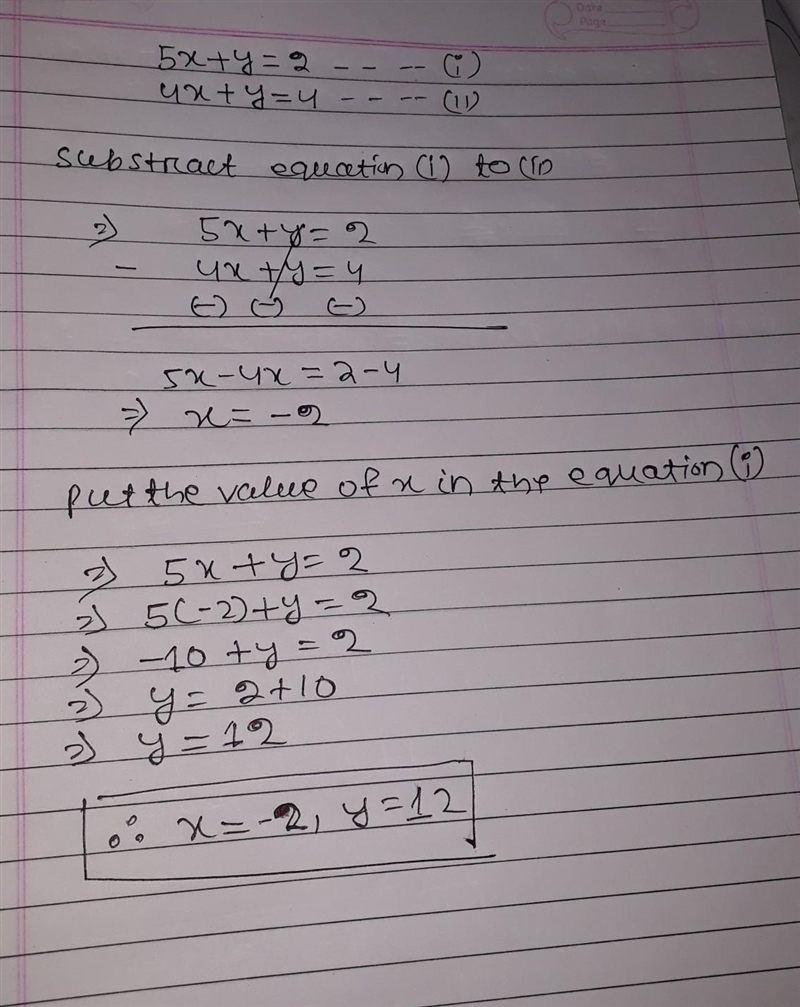 Date
Page
5x+y=2 - - -- (i)
4x+y=4 - - -- (11)
substract equation (i) to (ii)
=> 5x+y=2
- 4x+y=4
(-) (-) (-)
5x-4x=2-4
=> x=-2
put the value of x in the equation (i)
=> 5x+y=2
=> 5(-2)+y=2
=> -10+y=2
=> y=2+10
=> y=12
∴ x=-2, y=12